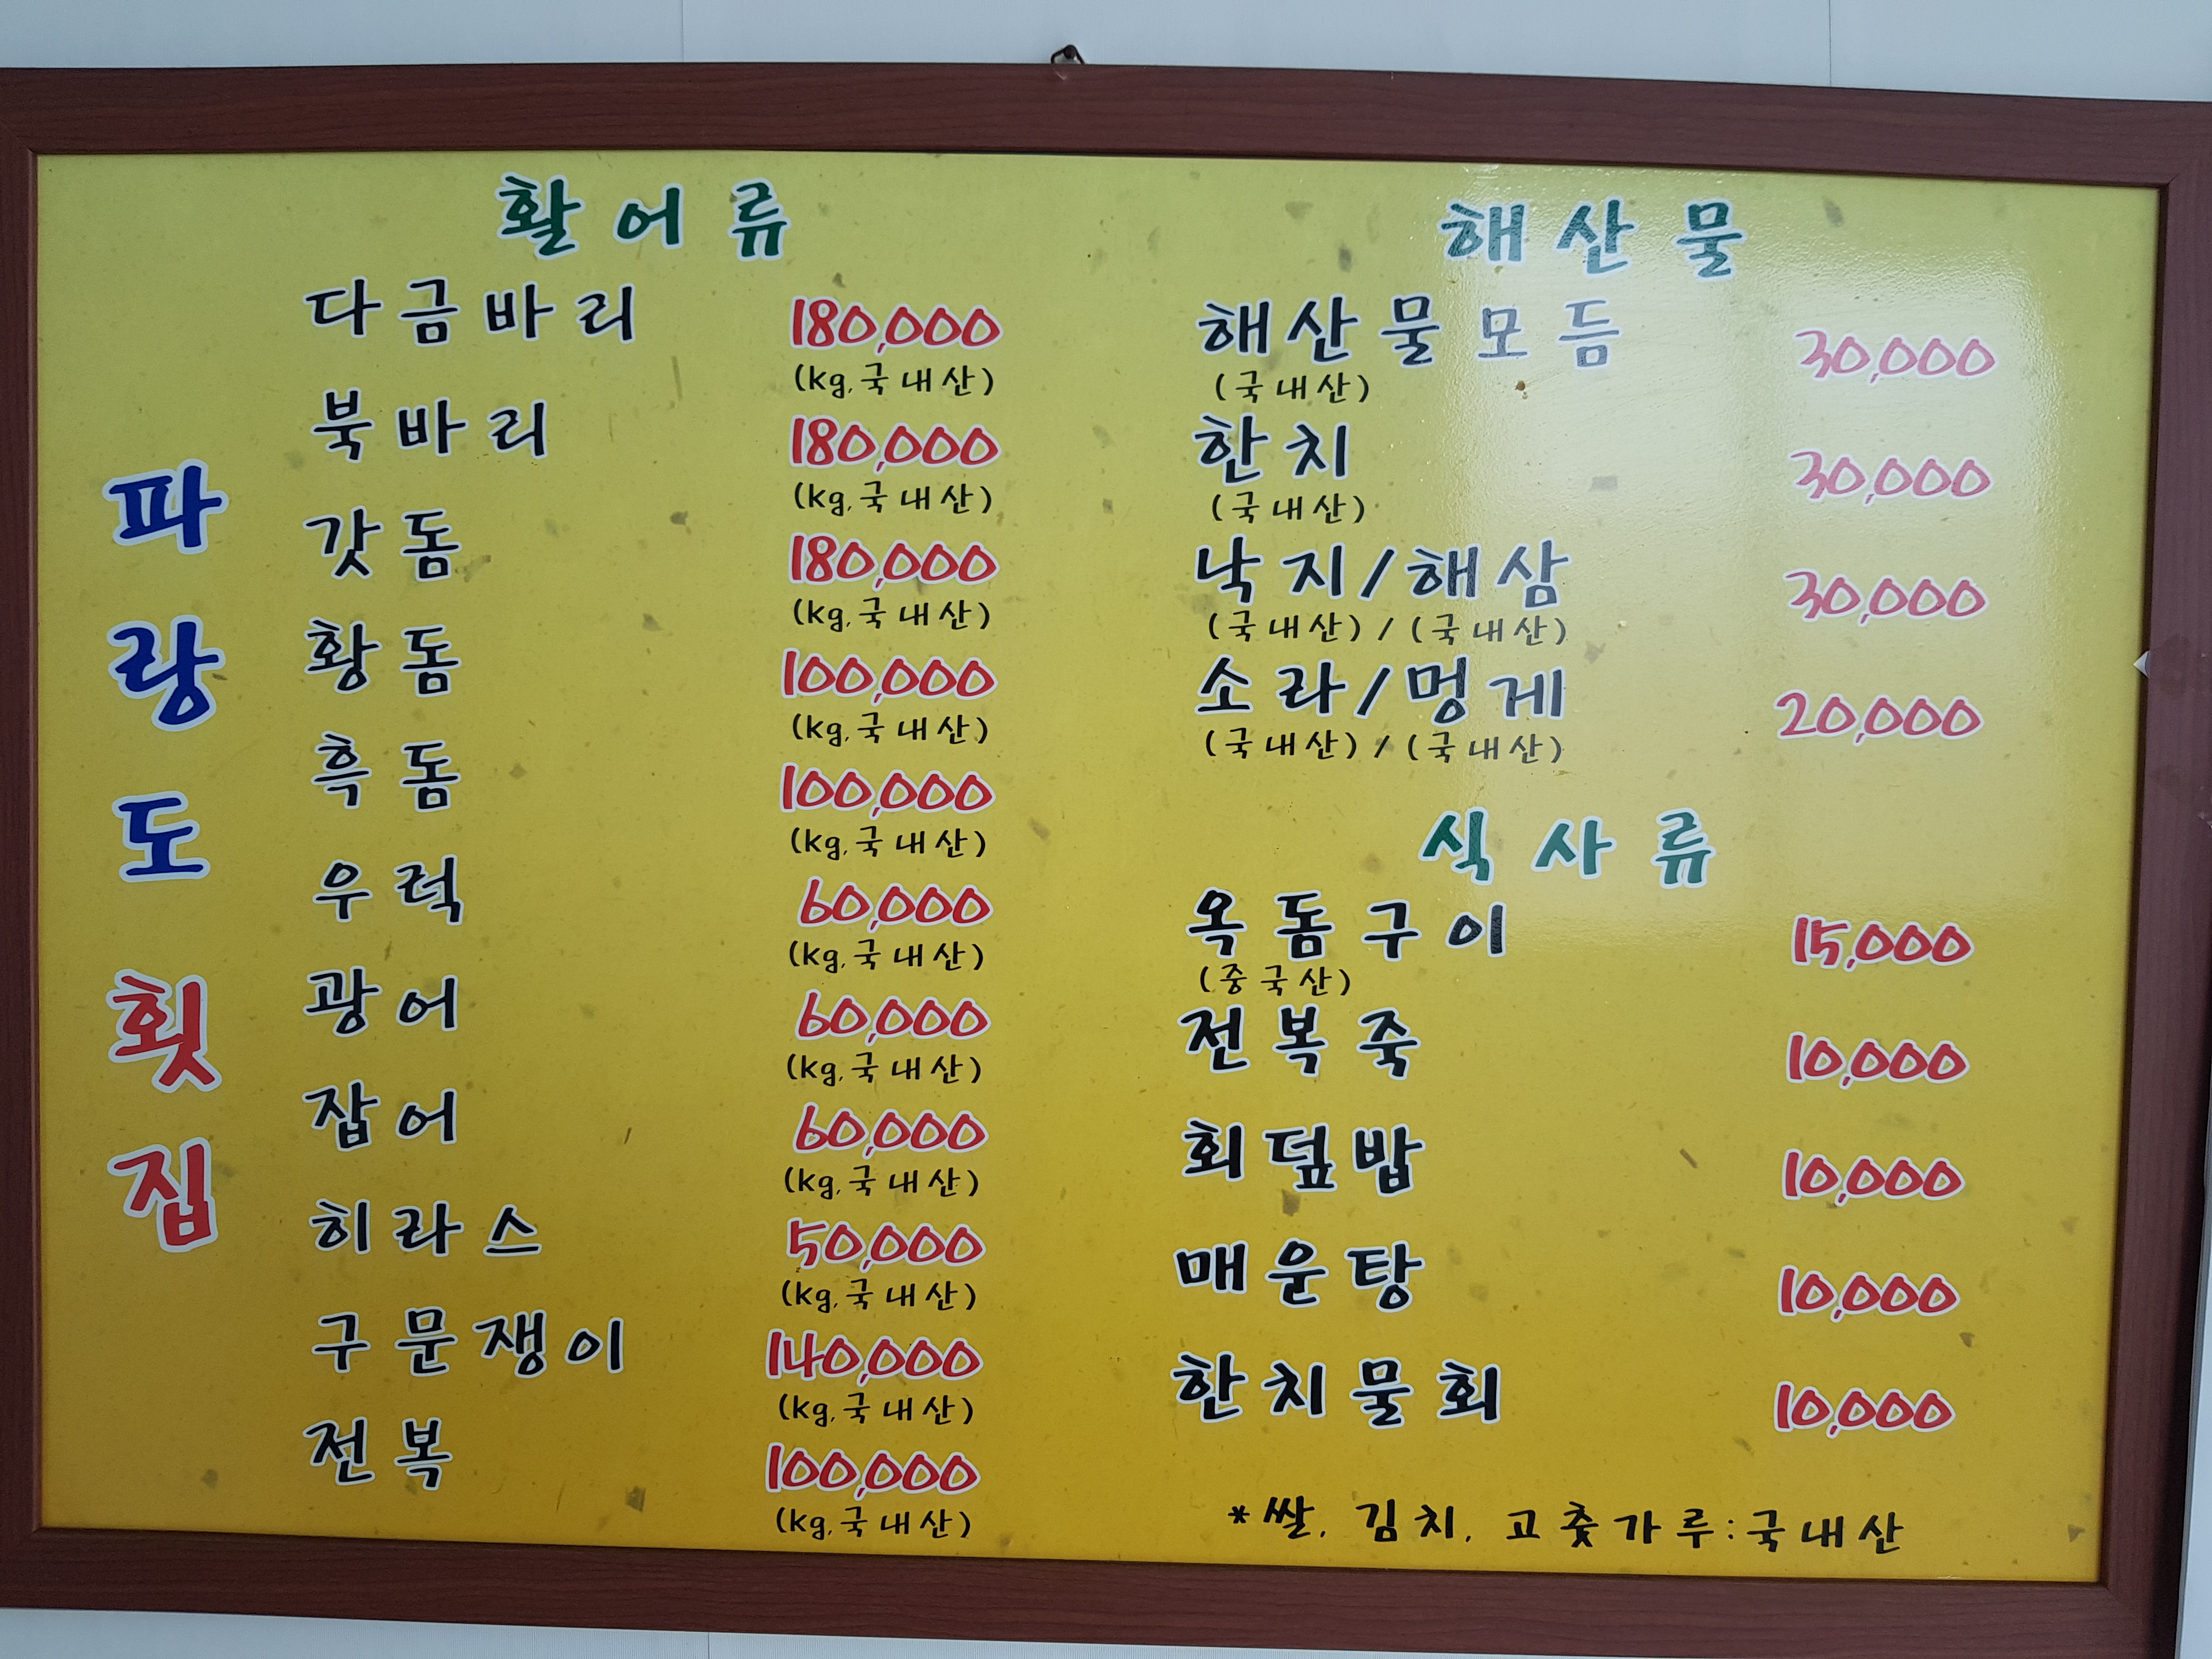 파랑도횟집
활어류
다금바리 180,000
(kg,국내산)
북바리 180,000
(kg,국내산)
갓돔 180,000
(kg,국내산)
황돔 100,000
(kg,국내산)
흑돔 100,000
(kg,국내산)
우럭 60,000
(kg,국내산)
광어 60,000
(kg,국내산)
잡어 60,000
(kg,국내산)
히라스 50,000
(kg,국내산)
구문쟁이 140,000
(kg,국내산)
전복 100,000
(kg,국내산)
해산물
해산물모듬 30,000
(국내산)
한치 30,000
(국내산)
낙지/해삼 30,000
(국내산)/(국내산)
소라/멍게 20,000
(국내산)/(국내산)
식사류
옥돔구이 15,000
(중국산)
전복죽 10,000
회덮밥 10,000
매운탕 10,000
한치물회 10,000
*쌀, 김치, 고춧가루:국내산